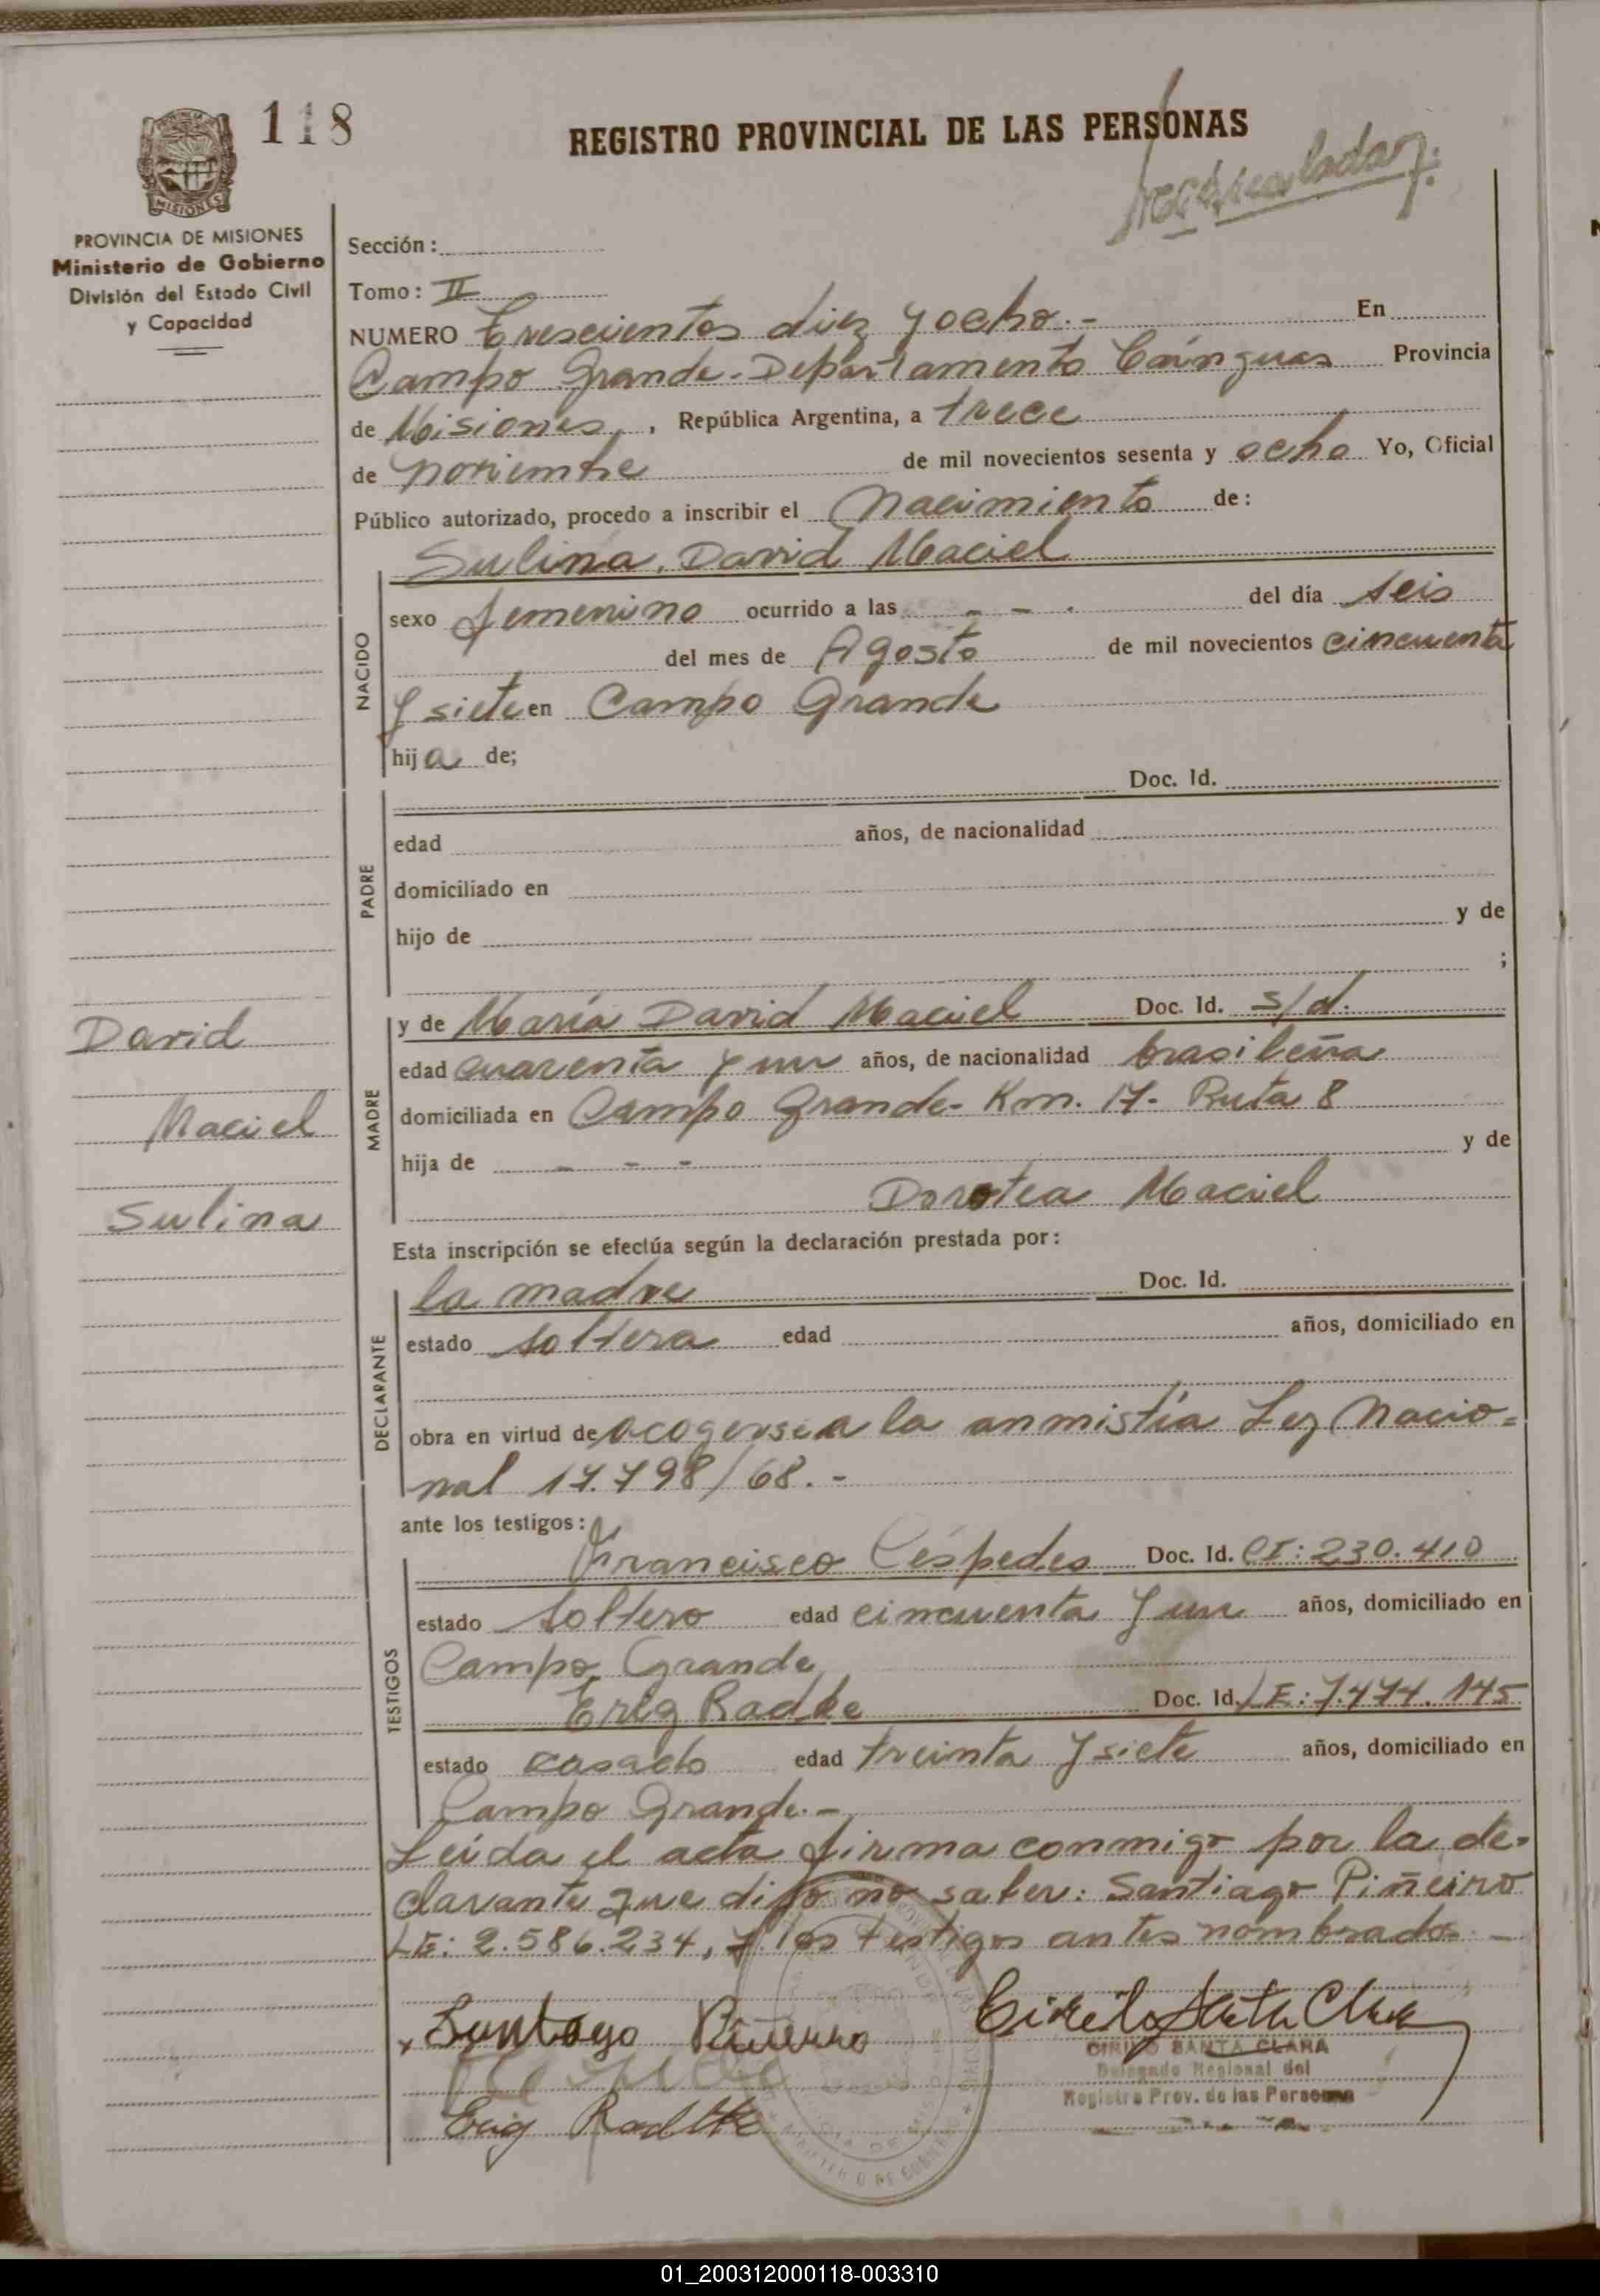 118
REGISTRO PROVINCIAL DE LAS PERSONAS
MISIONES
PROVINCIA DE MISIONES
Ministerio de Gobierno
División del Estado Civil
y Capacidad
Sección :
Tomo : II
NUMERO Trescientos diez y ocho.- En
Campo Grande - Departamento Cainguas Provincia
de Misiones, , República Argentina, a trece
de noviembre de mil novecientos sesenta y ocho Yo, Oficial
Público autorizado, procedo a inscribir el Nacimiento de :
Sulina, David Maciel
NACIDO
sexo femenino ocurrido a las - - . del día seis
del mes de Agosto de mil novecientos cincuenta
y siete en Campo Grande
hija de;
PADRE
Doc. Id.
edad años, de nacionalidad
domiciliado en
hijo de y de
;
David
Maciel
Sulina
MADRE
y de María David Maciel Doc. Id. s/d.
edad cuarenta y un años, de nacionalidad brasileña
domiciliada en Campo Grande - Km. 17 - Ruta 8
hija de - - - y de
Dorotea Maciel
Esta inscripción se efectúa según la declaración prestada por :
DECLARANTE
la madre Doc. Id.
estado soltera edad años, domiciliado en
obra en virtud de acogerse a la anmistía Ley Nacio=
nal 17.798/68.-
ante los testigos :
TESTIGOS
Francisco Céspedes Doc. Id. CI: 230.410
estado soltero edad cincuenta y un años, domiciliado en
Campo Grande
Erig Radke Doc. Id. LE: 7.474.145
estado casado edad treinta y siete años, domiciliado en
Campo Grande.-
Leída el acta firma conmigo por la de-
clarante que dijo no saber: Santiago Piñeiro
LE: 2.586.234, y los testigos antes nombrados. -
Santiago Piñeiro
Cirilo Santa Clara
CIRILO SANTA CLARA
Delegado Regional del
Registro Prov. de las Personas
Erig Radtke
01_200312000118-003310